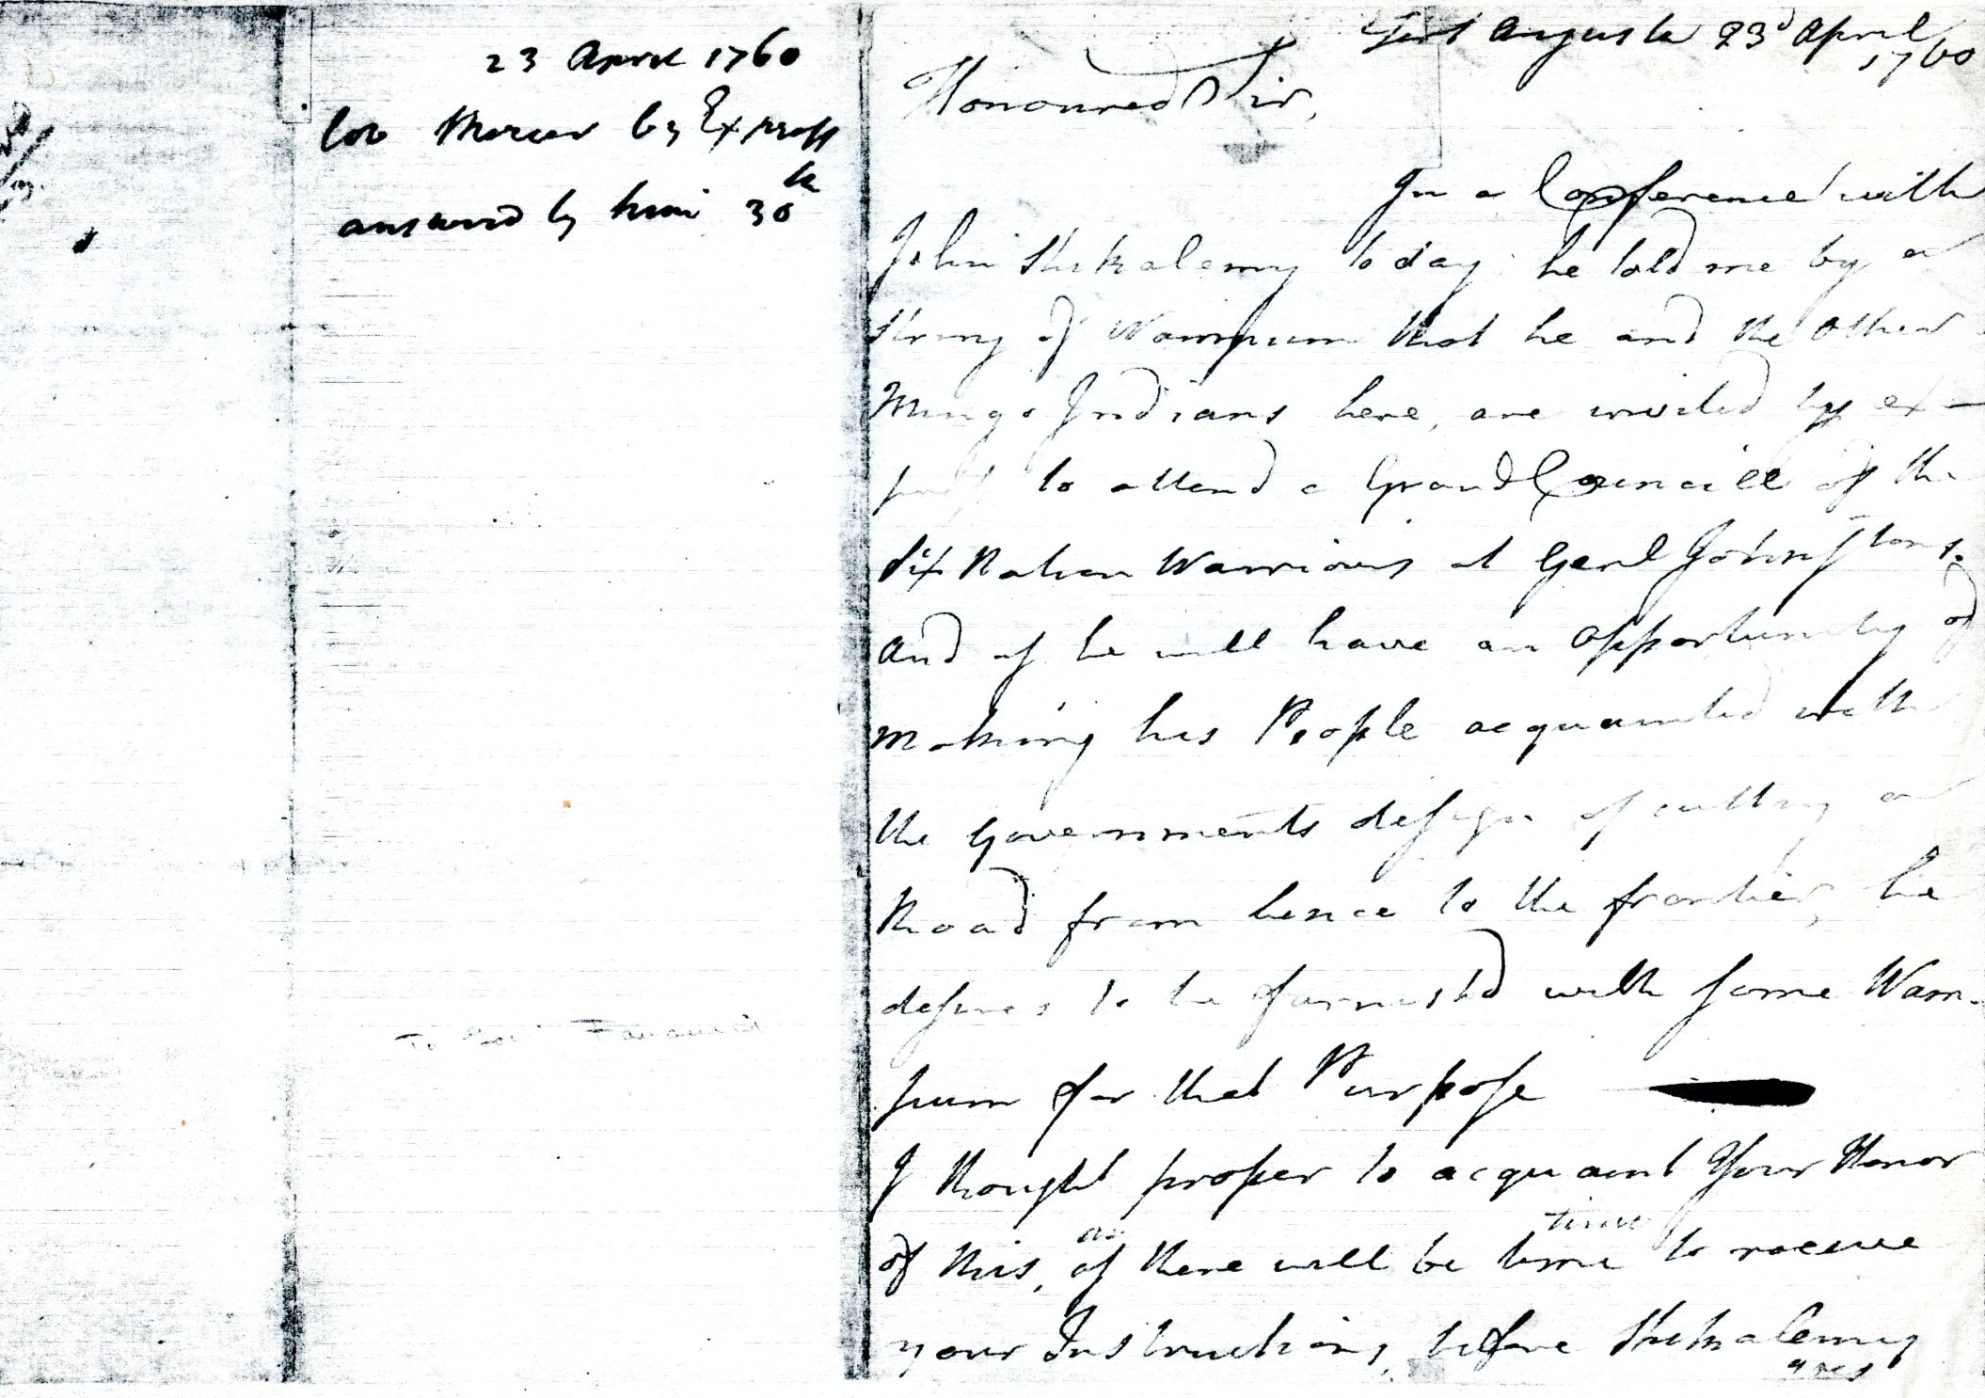 23 April 1760
Col Mercer by Express
answered by him 30th
Fort Augusta 23d April
1760
Honoured Sir,
In a Conference with
John Shekalemy today he told me by a
String of Wampum that he and the other
Mingo Indians here, are invited by ex-
press to attend a Grand Councill of the
Six Nation Warriours at Genl Johnstons.
And as he will have an Opportunity of
making his People acquainted with
the Governments design of cutting a
Road from hence to the frontier, he
desires to be furnishd with some Wam-
pum for that Purpose
I thought proper to acquaint Your Honor
of this, as there will be time to receive
as
time
your Instructions, before Shekalemy
goes